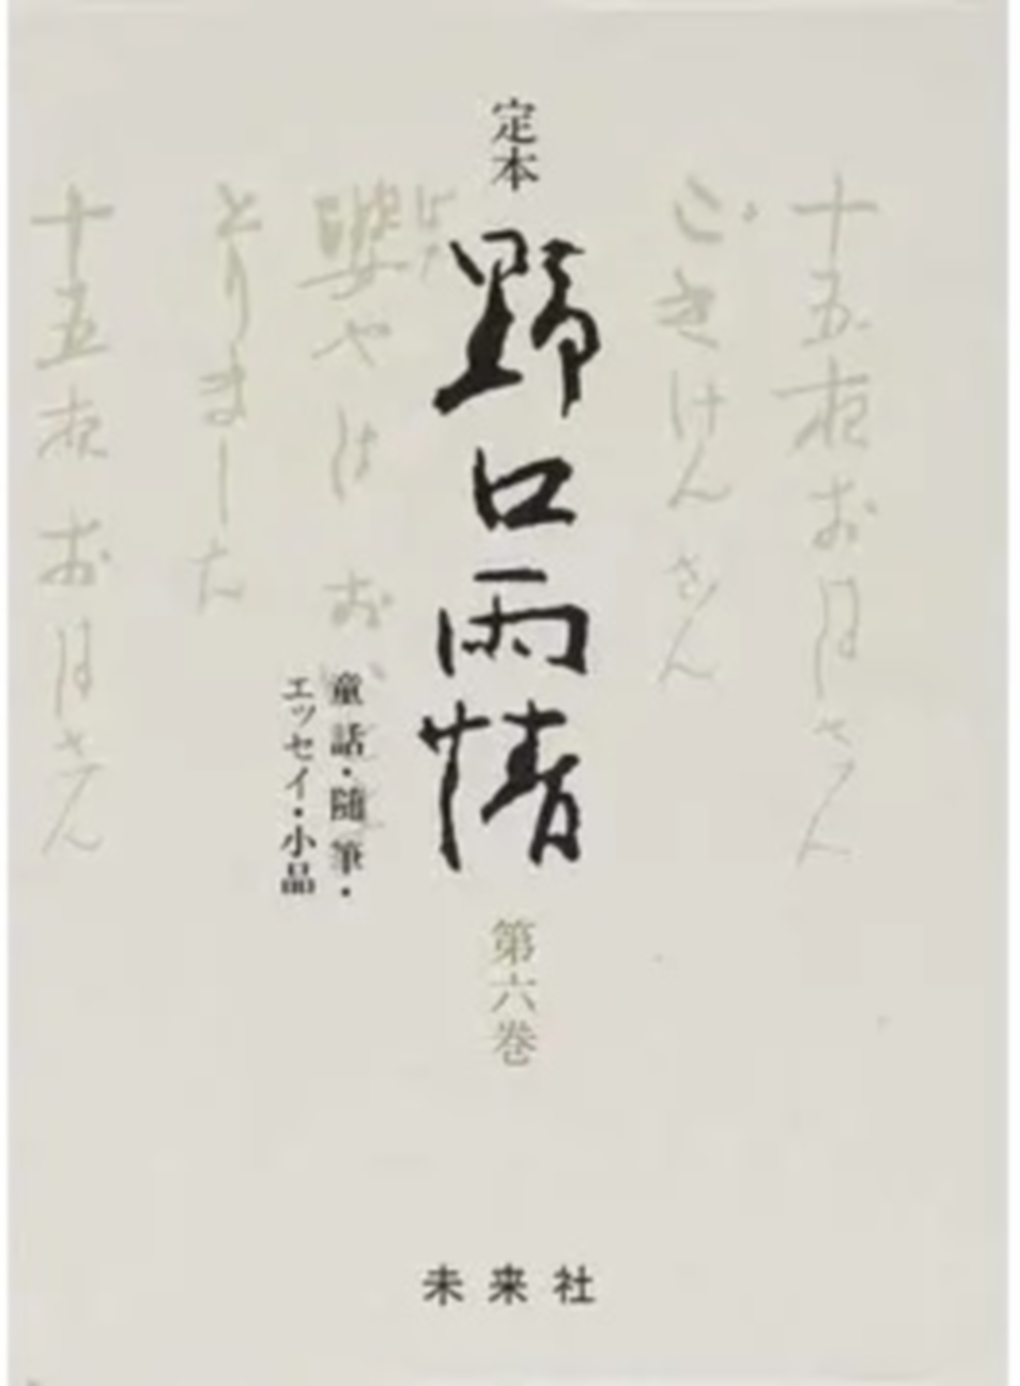 定本
野口雨情
第六巻
童話・随筆・
エッセイ・小品
未来社
十五夜お月さん
ごきけんさん
やは お
とりました
十五夜お月さん